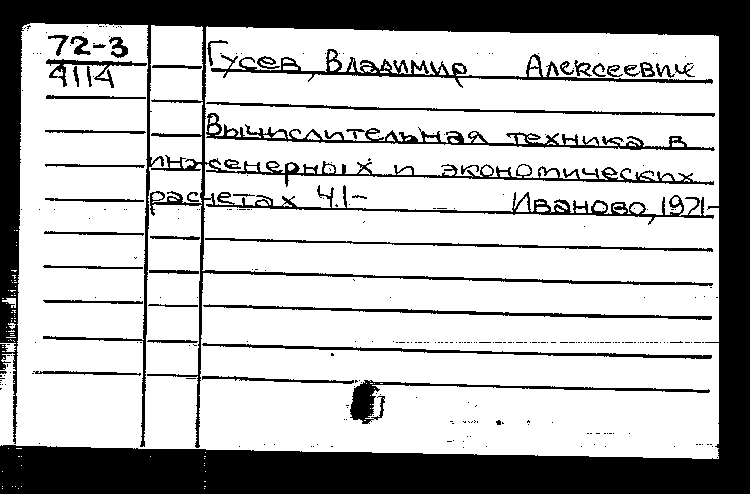 72-3 Гусев, Владимир Алексеевич
4114
Вычислительная техника в
инженерных и экономических
расчетах Ч.1- Иваново, 1971-